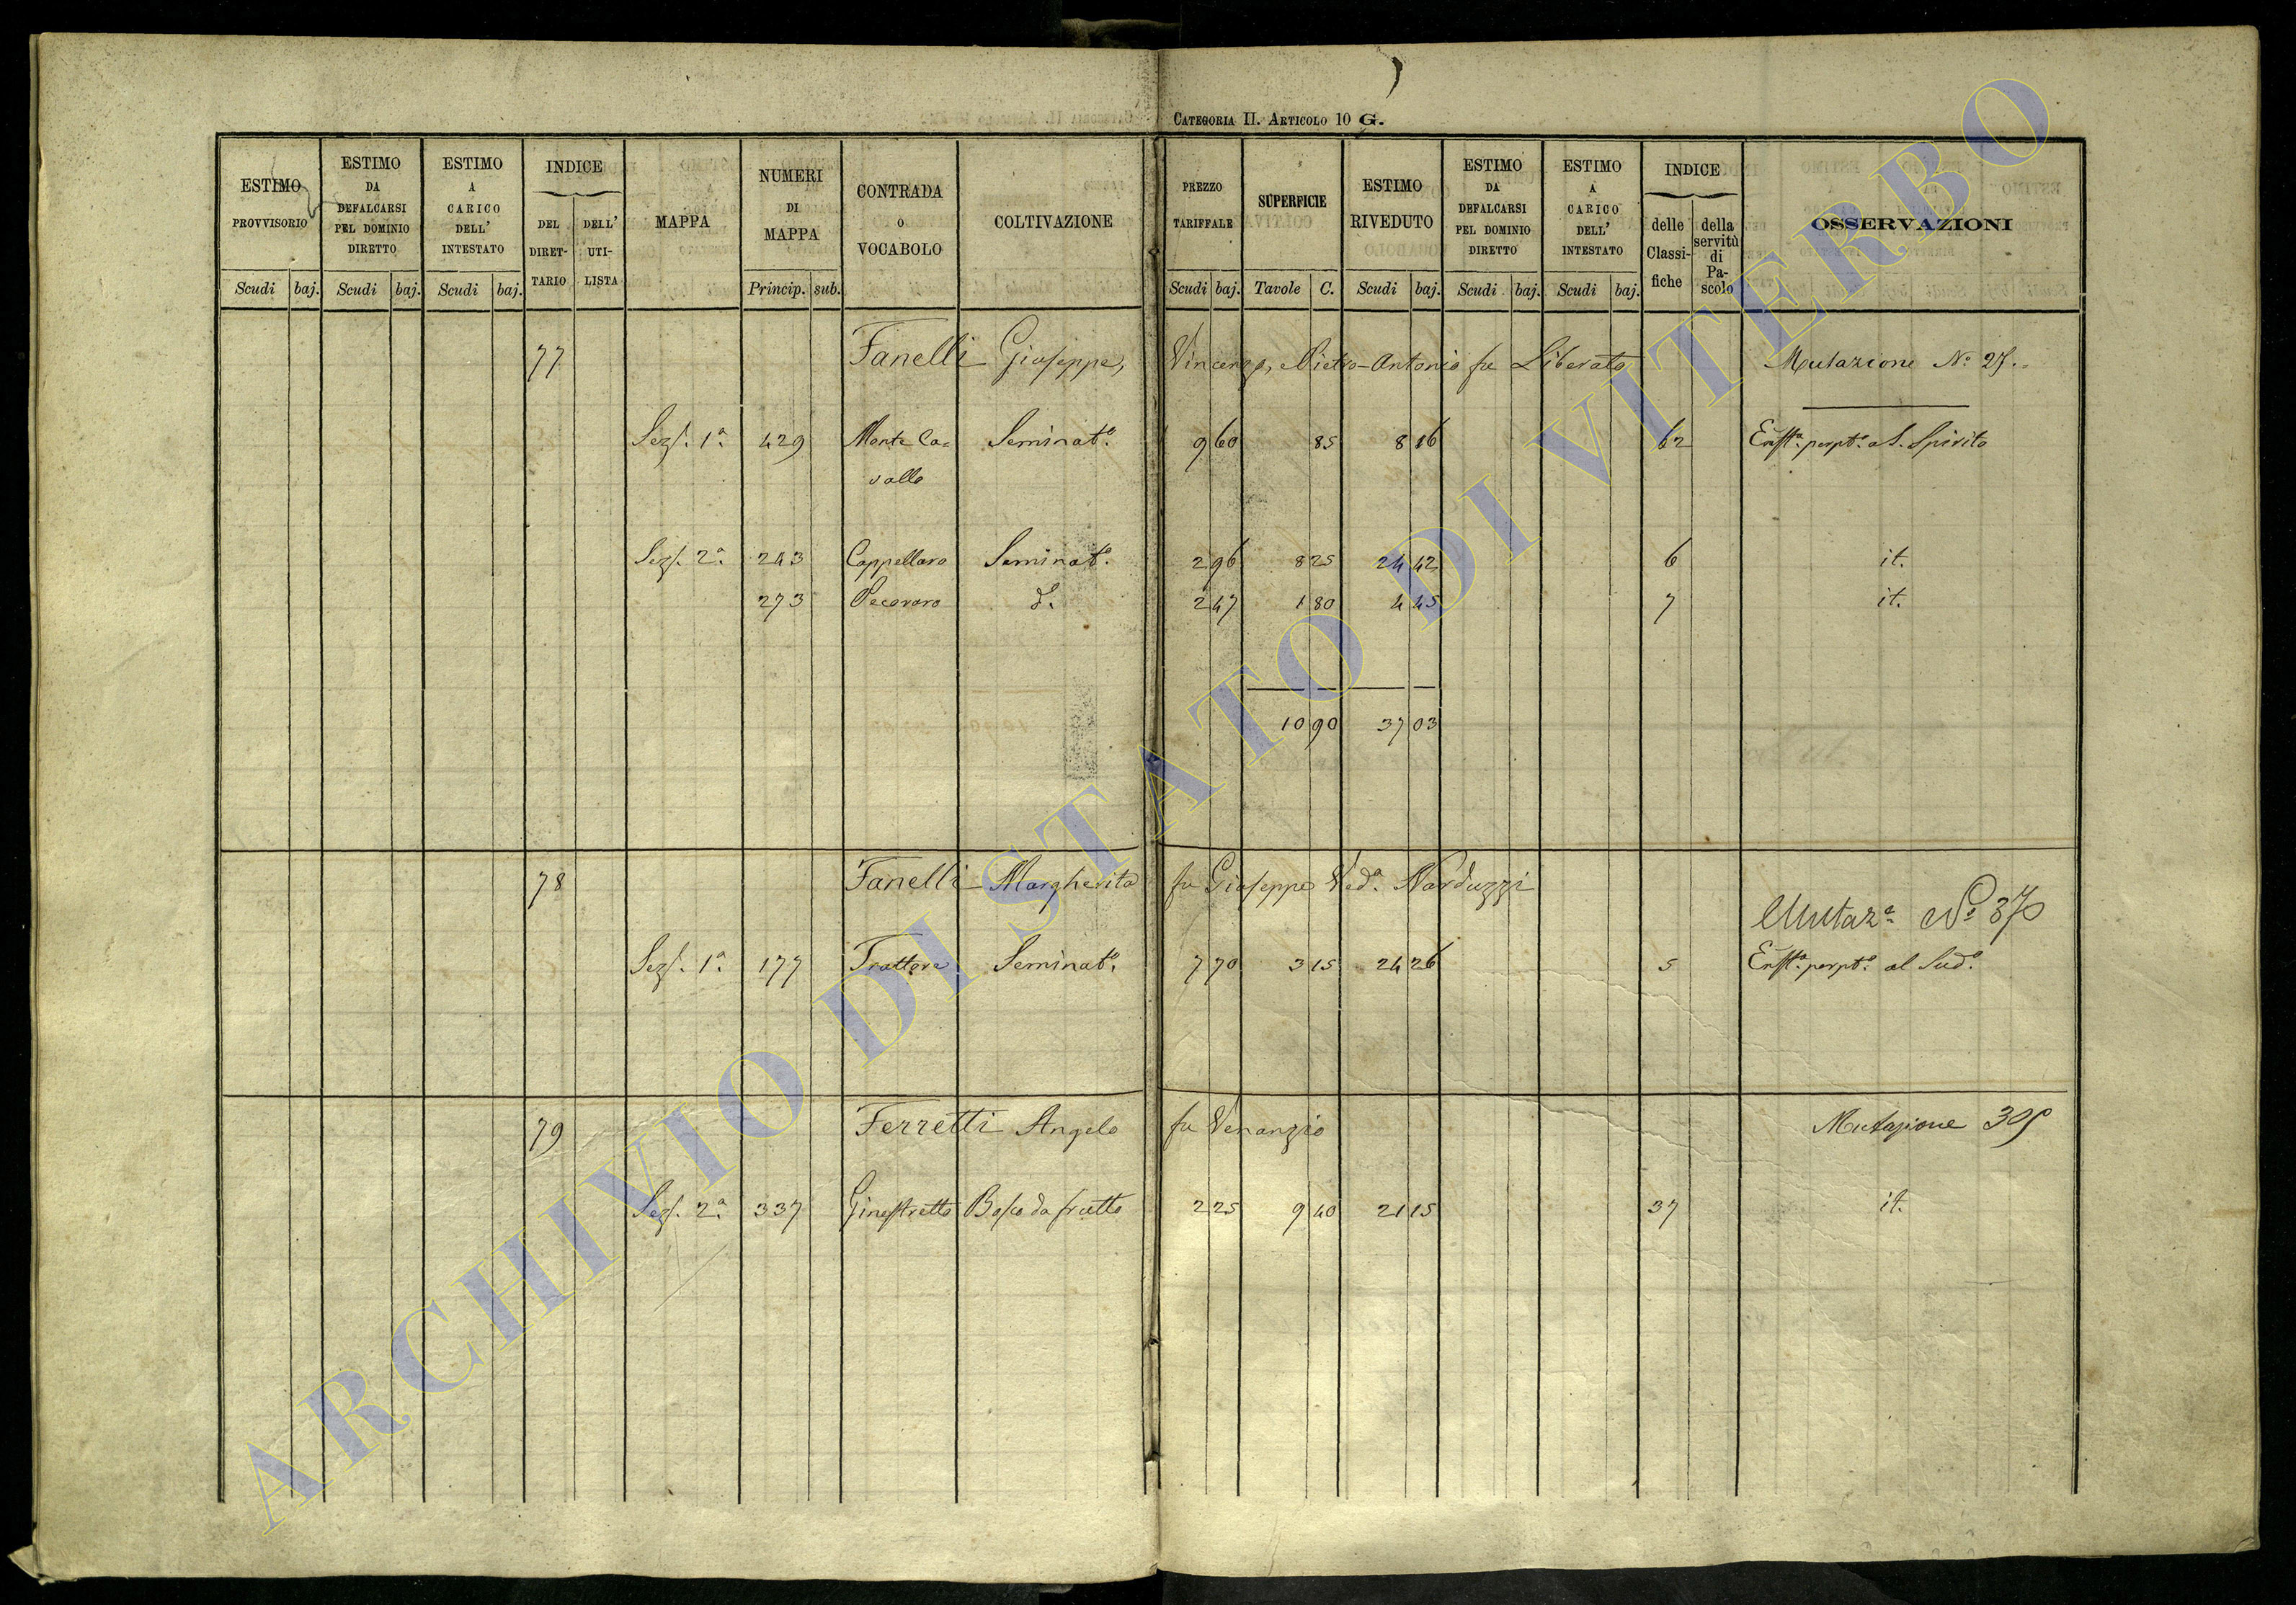 CATEGORIA II. ARTICOLO 10 G.
ESTIMO PROVVISORIO Scudi baj.
ESTIMO DA DEFALCARSI PEL DOMINIO DIRETTO Scudi baj.
ESTIMO A CARICO DELL' INTESTATO Scudi baj.
INDICE DEL DIRETTARIO DELL' UTILISTA
MAPPA
NUMERI DI MAPPA Princip. sub.
CONTRADA O VOCABOLO
COLTIVAZIONE
PREZZO TARIFFALE Scudi baj.
SUPERFICIE Tavole C.
ESTIMO RIVEDUTO Scudi baj.
ESTIMO DA DEFALCARSI PEL DOMINIO DIRETTO Scudi baj.
ESTIMO A CARICO DELL' INTESTATO Scudi baj.
INDICE delle Classifiche della servitù di Pascolo
OSSERVAZIONI
77 Fanelli Giuseppe, Vincenzo, Pietro-Antonio fu Liberato Mutazione N.o 27.
Sez. 1a. 429 Monte Ca= Seminat.o 9 60 85 8 16 62 Enft.a perpt.a a S. Spirito
vallo
Sez. 2a. 243 Cappellaro Seminat.o 2 96 8 25 24 42 6 it.
273 Pecoraro d.o 2 47 1 80 4 45 7 it.
10 90 37 03
78 Fanelli Margherita fu Giuseppe Ved.a Narduzzi
Mutaz.e N.o
Sez. 1a. 177 Trottere Seminat.o 7 70 3 15 24 26 5 Enft.a perpt.a al Sud.o
79 Ferretti Angelo fu Venanzio Mutazione
Sez. 2a. 337 Ginestretto Bosco da frutto 2 25 9 40 21 15 37 it.
ARCHIVIO DI STATO DI VITERBO